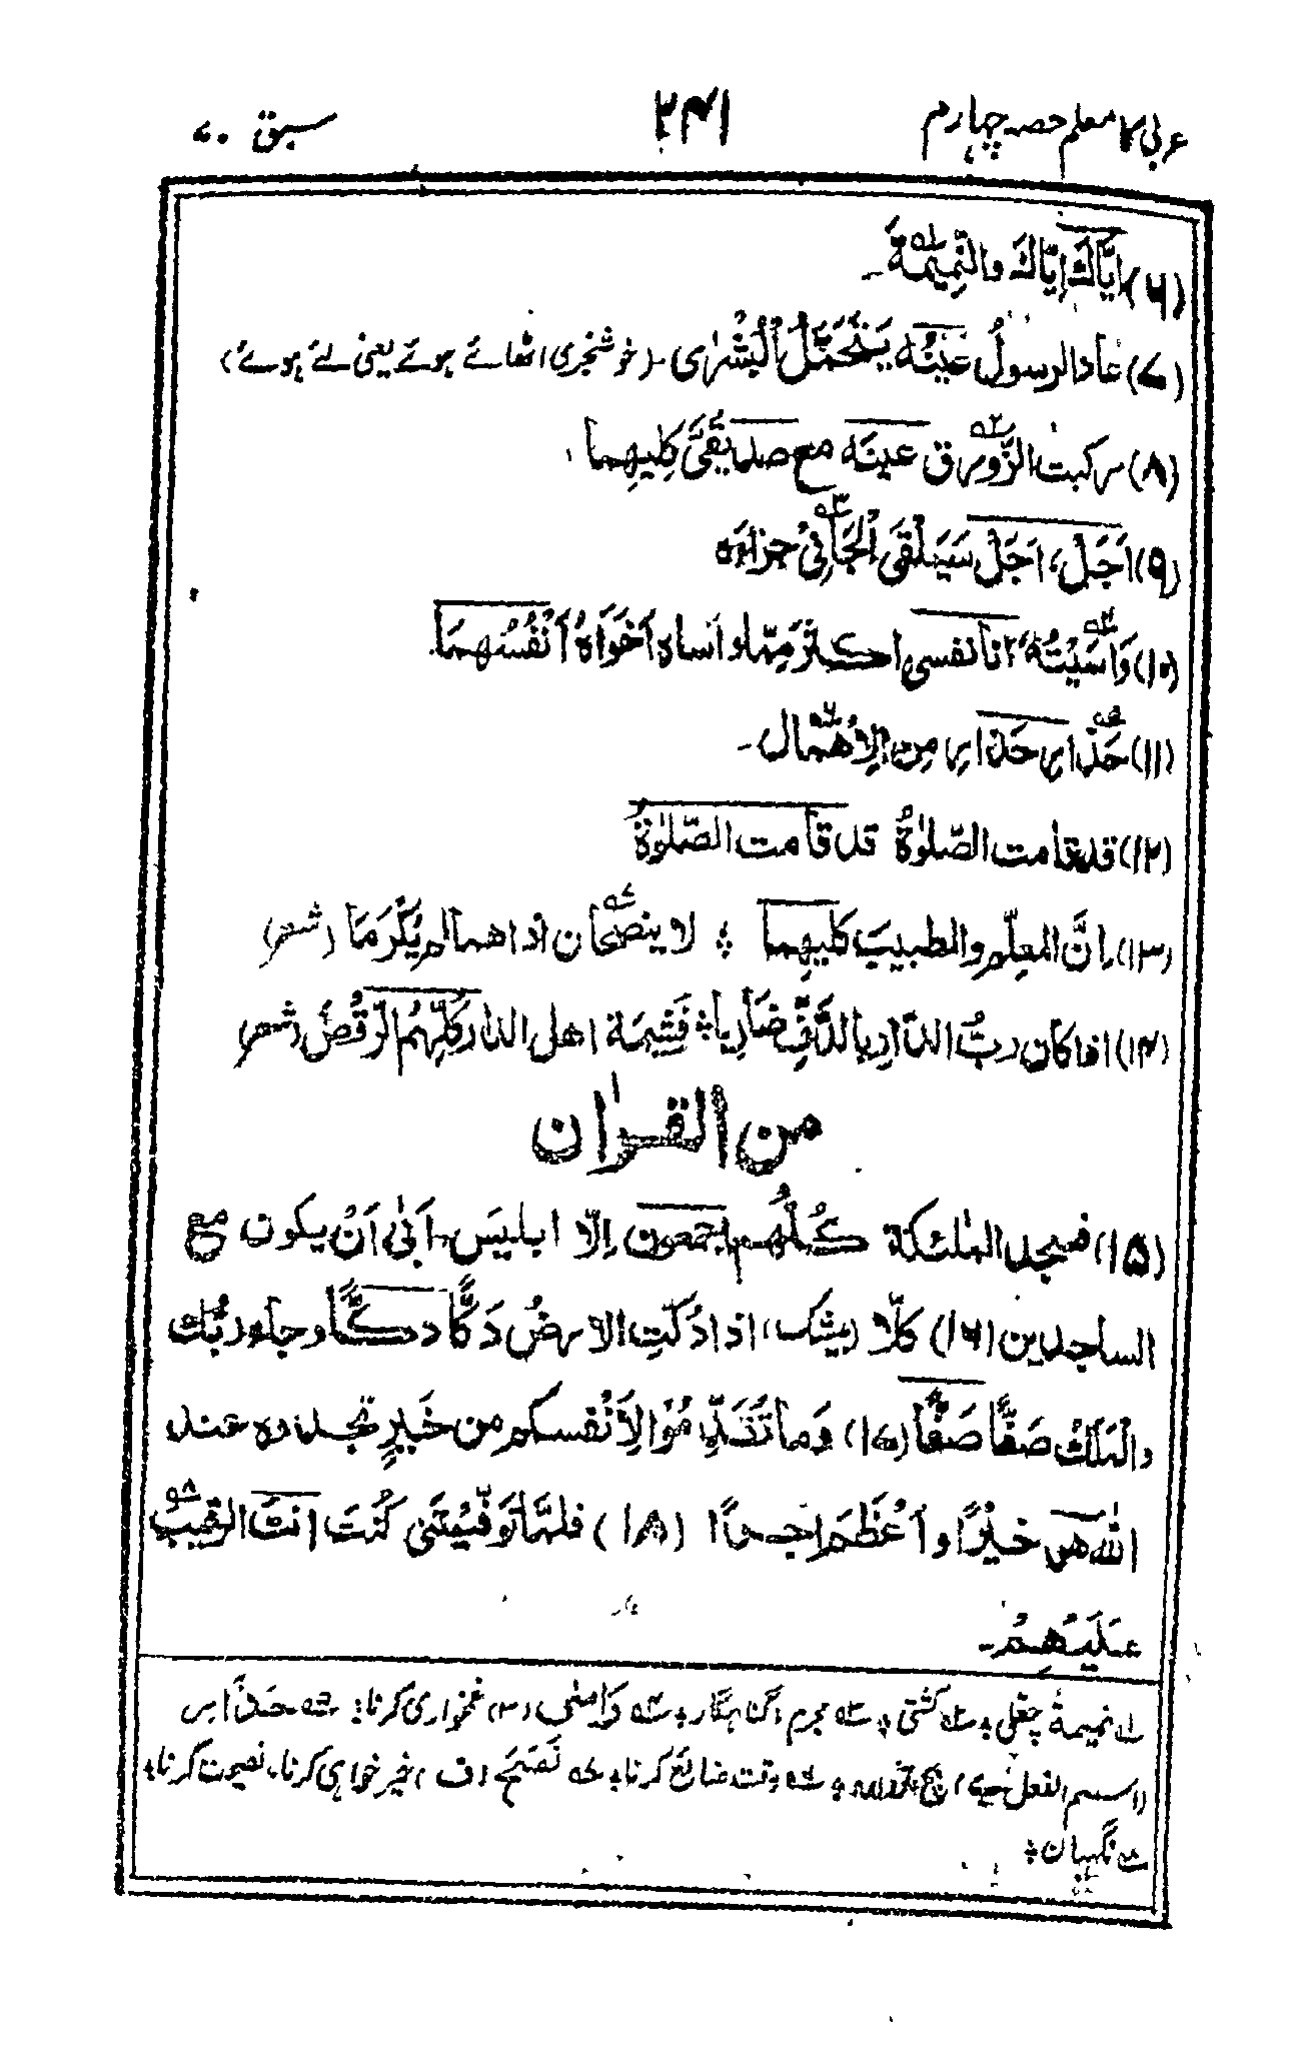 عربی کا معلم حصہ چہارم ۲۴۱ سبق ۷۰
(۶) اِیَّاكَ اِیَّاكَ والنَّمِیمَةَ ۱ـ
(۷) عادالرسولُ عَینُہ یَتَحَمَّلُ الْبُشْرٰی ـ (خوشخبری اٹھائے ہوئے یعنی لئے ہوئے)
(۸) رکبت الزَّورق۲ عینَہ مع صدیقَیَّ کِلیهِما
(۹) اَجَلْ، اَجَلْ سَیَلْقَی الْجَانِیْ۳ جزاءَہ
(۱۰) وَاسَیْتُہ۴ اَنا نفسی اکثرَ مِمّا واَساہ اَخَوَاہُ اَنْفُسُهمَا۔
(۱۱) حَذَارِ۵ حَذَارِ مِن الاِهْمَال۶ ـ
(۱۲) قدقامت الصّلوٰةُ قد قامت الصّلوٰةُ
(۱۳) اِنَّ المعلِّم والطبیبَ کلیهِما ؞ لا ینصحان۷ اذا هما لم یُکرَمَا (شعر)
(۱۴) اذا کان ربُّ الدّارِ بالدَّفِّ ضَارِبا ؞ فَشِیمَة اهلِ الدار کُلِّهِمُ الرّقْصُ (شعر)
من القراٰن
(۱۵) فسجد الملٰئکة کُلُّهم اجمعون اِلّا ابلیسَ۔ اَبیٰ اَنْ یکون مع
الساجدین (۱۶) کلّا (بیشک) اذا دُکَّتِ الارضُ دَکًّا دکًّا وجاء ربُّك
والْمَلَكُ صَفًّا صَفًّا (۱۷) وَما تُقَدِّمُوْا لِاَنْفسکم من خَیرٍ تجدوہ عند
اللّٰہ هو خیْرًا واَعْظَمَ اجرًا (۱۸) فلمّا تَوَفَّیْتَنی کُنْتَ اَنتَ الرقیبَ۸
عَلَیْهِمْ۔
۱ نمیمة چغلی ؞ ۲ کشتی ؞ ۳ مجرم، گناہگار ؞ ۴ وَاسٰی (۳) غمخواری کرنا ؞ ۵ حَذَارِ
(اسم الفعل ہے) ؞ ۶ وقت ضائع کرنا ؞ ۷ نَصَحَ (ف) خیر خواہی کرنا، نصیحت کرنا ؞
۸ نگہبان ؞